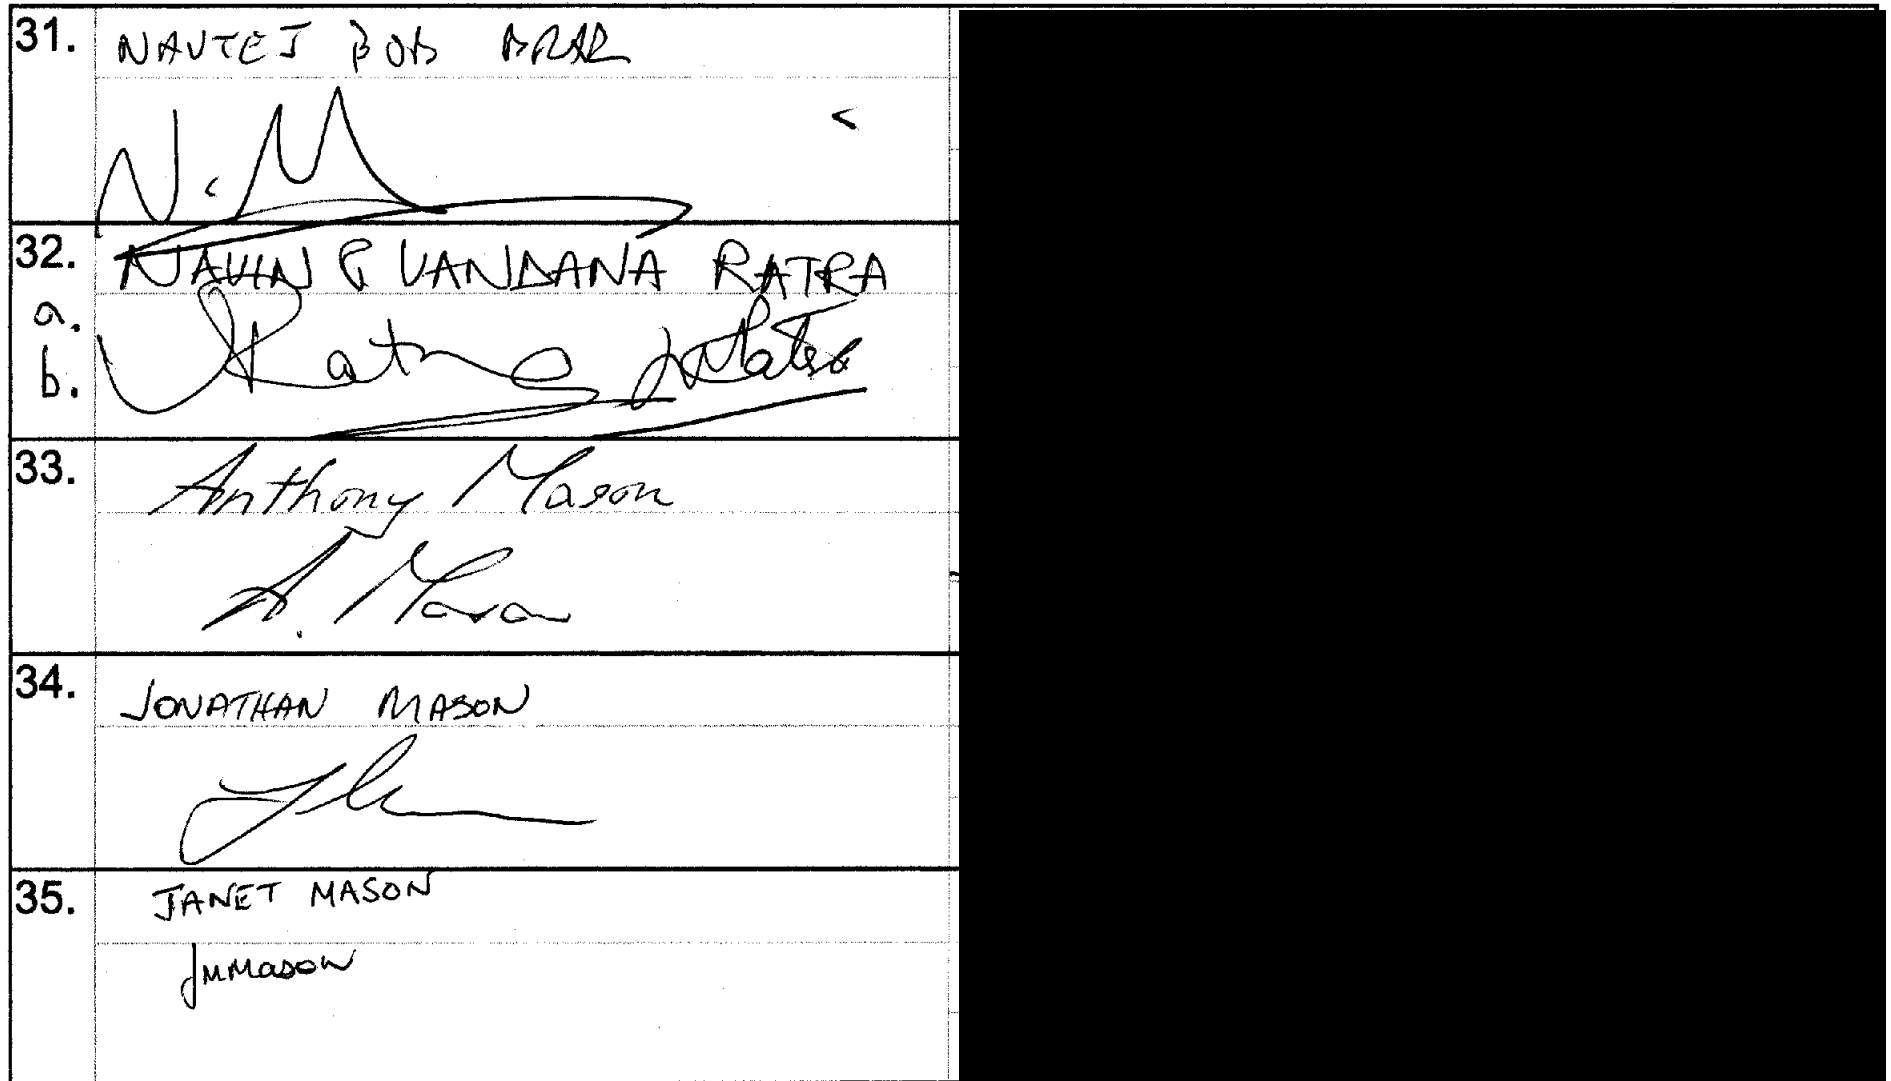 31. NAVTEJ BOB BRAR
32. NAVIN & VANDANA RATRA
a. VRatra
b. NRatra
33. Anthony Mason
A. Mason
34. JONATHAN MASON
35. JANET MASON
JMMason